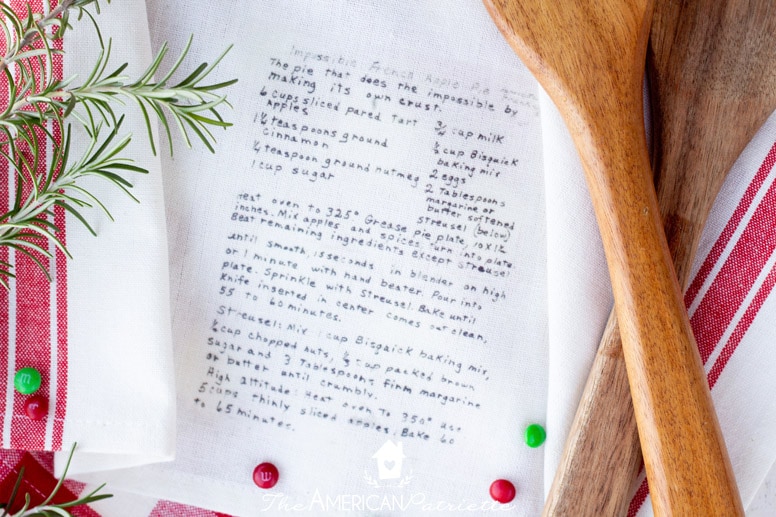 Impossible French Apple Pie
The pie that does the impossible by
making its own crust.
6 cups sliced pared tart
Apples
1¼ teaspoons ground
Cinnamon
¼ teaspoon ground nutmeg
1 cup sugar
¾ cup milk
½ cup Bisquick
baking mix
2 eggs
2 Tablespoons
margarine or
butter softened
Streusel (below)
Heat oven to 325° Grease pie plate, 10 x 1½
inches. Mix apples and spices, turn into plate
Beat remaining ingredients except streusel
until smooth, 15 seconds in blender on high
or 1 minute with hand beater. Pour into
plate. Sprinkle with Streusel. Bake until
Knife inserted in center comes out clean,
55 to 60 minutes.
Streusel: Mix 1 cup Bisquick baking mix,
½ cup chopped nuts, ⅓ cup packed brown
Sugar and 3 Tablespoons firm margarine
or butter until crumbly.
High altitude: Heat oven To 350° use
5 cups thinly sliced apples. Bake 60
to 65 minutes.
The AMERICAN Patriette